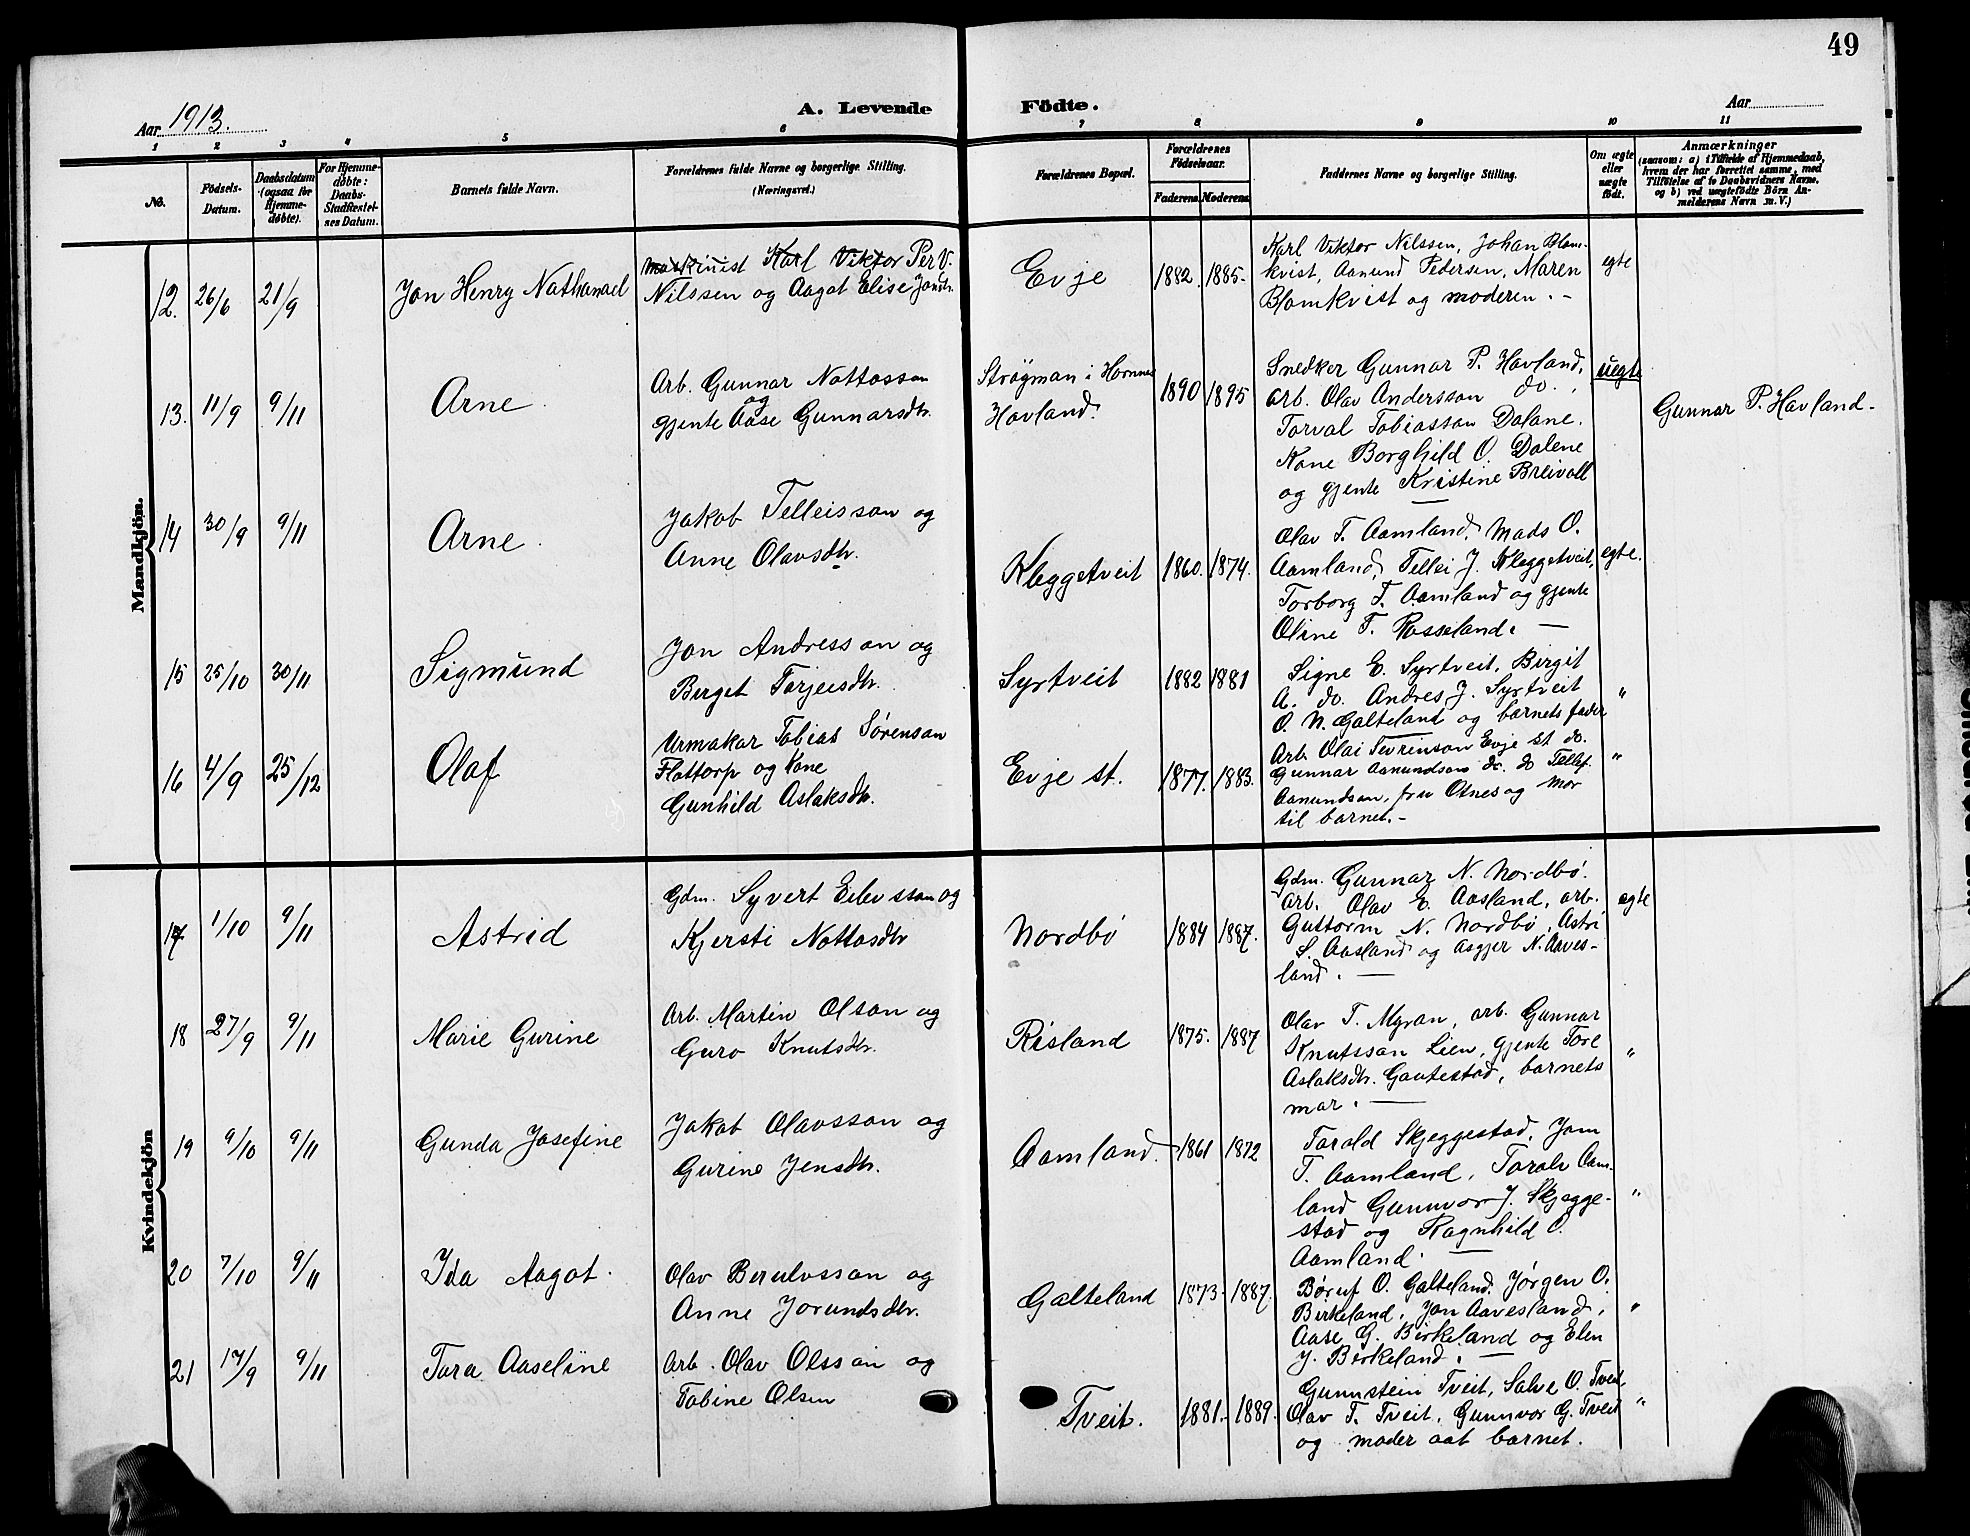 49
Aar 1913.
A. Levende Födte.
Aar
1 2 3 4 5 6 7 8 9 10 11
No.
Födsels-Datum.
Daabsdatum (ogsaa for Hjemmedöbte).
For Hjemmedöbte: Daabs-Stadfæstelses Datum.
Barnets fulde Navn.
Forældrenes fulde Navne og borgerlige Stilling. (Næringsvei.)
Forældrenes Bopæl.
Forældrenes Födselsaar.
Faderens. Moderens.
Faddernes Navne og borgerlige Stilling.
Om ægte eller uægte födt.
Anmærkninger
(saasom: a) i Tilfælde af Hjemmedaab, hvem der har forrettet samme, med Tilföielse af to Daabsvidners Navne, og b) ved uægtefödte Börn Anmelderens Navn m. V.)
Mandkjön.
12. 26/6 21/9 Jon Henry Nathanael
Maskinist Karl Viktor Per V.
Nilssen og Aagot Elise Jonsdtr.
Evje 1882. 1885.
Karl Viktor Nilssen, Johan Blom-
kvist, Aanund Pedersen, Maren
Blomkvist og moderen. -
egte
13. 11/9 9/11 Arne.
Arb. Gunnar Nottosson
og
gjente Aase Gunnarsdtr.
Strøgman i Hornnes
Havland.
1890 1895
Snedker Gunnar P. Havland,
arb. Olav Andersson do.,
Torval Tobiasson Dalane.
Kone Borghild O. Dalene
og gjente Kristine Breivoll
uegte
Gunnar P. Havland.
14 30/9 9/11 Arne.
Jakob Telleisson og
Anne Olavsdtr.
Kleggetveit 1860. 1874.
Olav T. Aamland, Mads O.
Aamland, Tellei J. Kleggetveit,
Torborg T. Aamland og gjente
Oline T. Rosseland. -
egte.
15 25/10 30/11 Sigmund
Jon Andresson og
Berget Torjeisdtr.
Syrtveit 1882 1881
Signe E. Syrtveit, Birgit
A. do. Andres J. Syrtveit
O. N. Galteland og barnets fader
"
16 4/9 25/12 Olaf
Urmakar Tobias Sørenson
Flottorp og Kone
Gunhild Aslaksdtr.
Evje st. 1877. 1883.
Arb. Olai Sevrinson Evje st do.
Gunnar Aanundson do. do Tellef
Aanundson, fru Otnes og Mor
til barnet. -
"
Kvindekjön
17 1/10 9/11 Astrid
Gdm. Syvert Eilevsson og
Kjersti Nottosdtr
Nordbø 1884 1887.
Gdm. Gunnar N. Nordbø.
arb. Olav E. Aasland, arb.
Guttorm N. Nordbø, Astri
S. Aasland og Asgjer N. Aaves-
land. -
egte
18 27/9 9/11 Marie Gurine
Arb. Martin Olson og
Guro Knutsdtr.
Risland 1875. 1887
Olav T. Myran, arb. Gunnar
Knutsson Lien, gjente Tore
Aslaksdtr. Gautestad, barnets
mor. -
"
19 9/10 9/11 Gunda Josefine
Jakob Olavsson og
Gurine Jensdtr.
Aamland. 1861 1872
Torald Skjeggestad, Jom
T. Aamland, Torale Aam-
land Gunnvor J. Skjegge-
stad og Ragnhild O.
Aamland. -
"
20 7/10 9/11 Ida Aagot.
Olav Berulvsson og
Anne Jorundsdtr.
Galteland 1873. 1887.
Børuf O. Galteland. Jørgen O.
Birkeland, Jon Aavesland,
Aase G. Birkeland og Elen
J. Birkeland. -
"
21 17/9 9/11 Tora Aaseline
Arb. Olav Olsson og
Tobine Olsen
Tveit. 1881. 1889.
Gunnstein Tveit, Salve O. Tveit,
Olav T. Tveit, Gunnvor G. Tveit
og moder aat barnet.
"